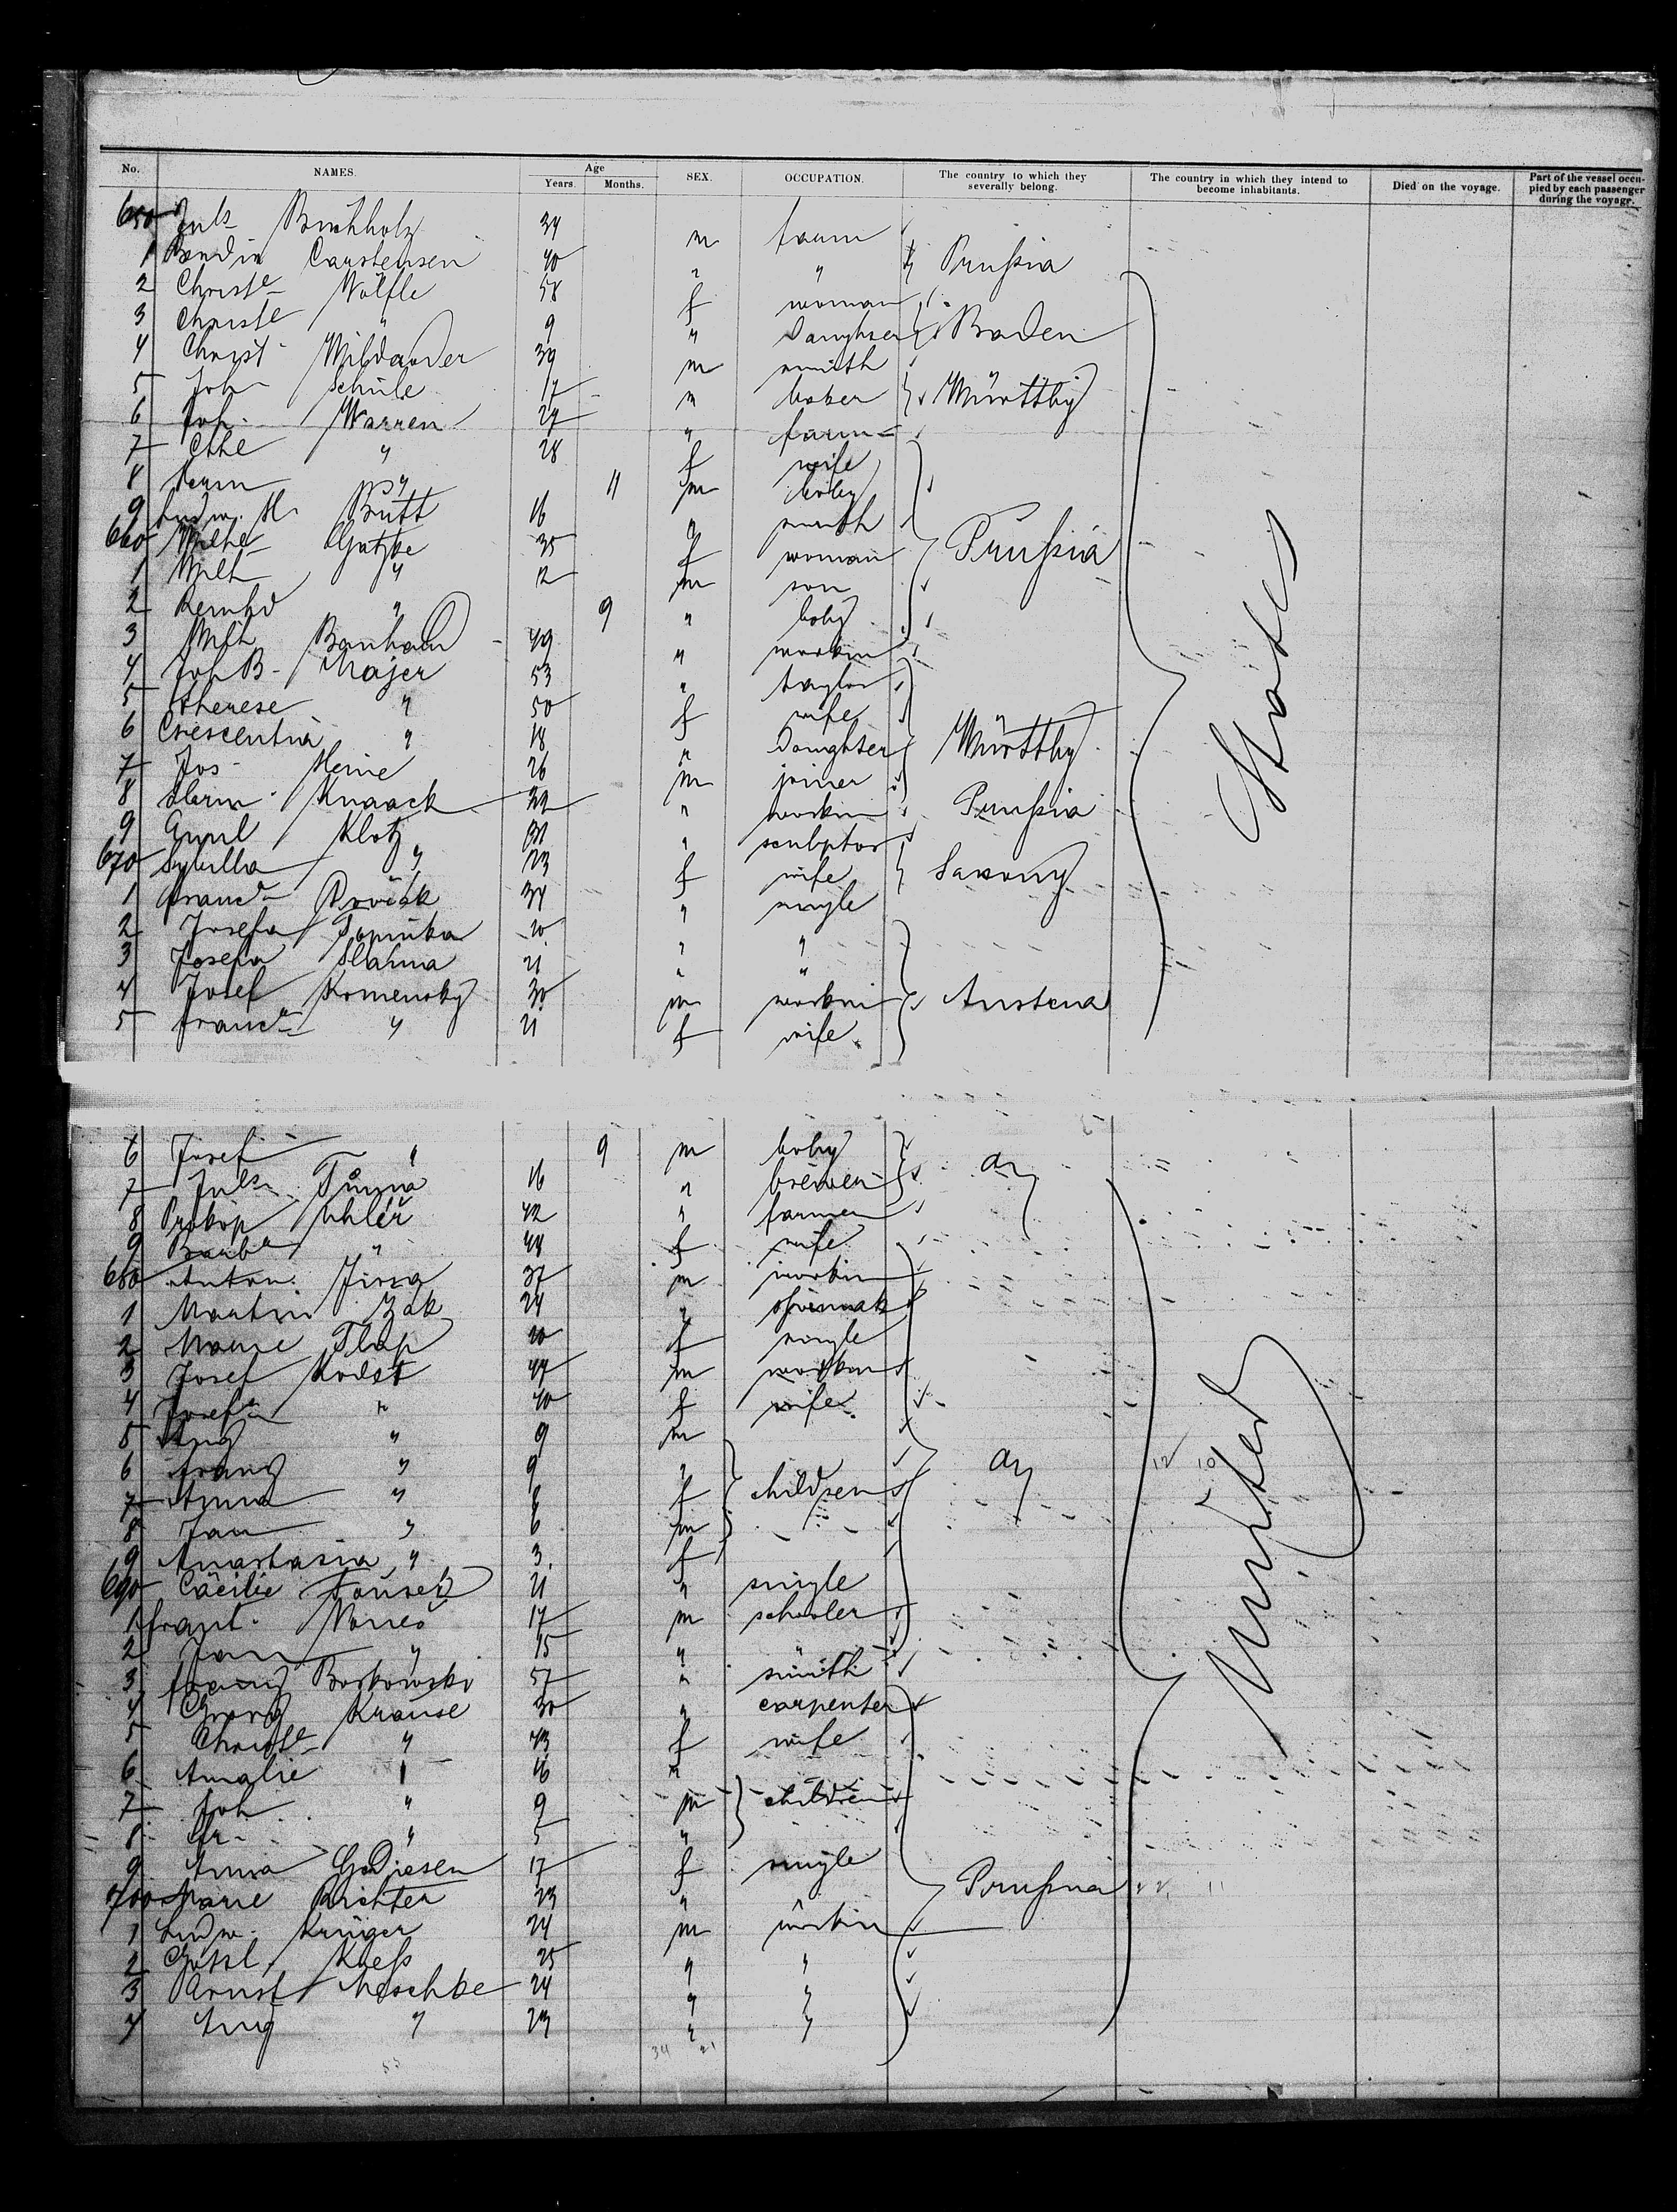 No. NAMES. Age Years. Months. SEX. OCCUPATION. The country to which they severally belong. The country in which they intend to become inhabitants. Died on the voyage. Part of the vessel occupied by each passenger during the voyage.
650 Juls Buchholz 34 m farm
1 Bendix Carstensen 40 " " Prußia
2 Christe Wölfle 58 f woman
3 Christe " 9 " Daughter Baden
4 Christ 39 m smith
5 Joh Schüle 17 " baker Württbg
6 Joh. Warren 27 " farm
7 " 28 f wife
8 Herm " 11 m baby
9 Ludw. H. Butt 16 " smith
660 Wilhe Gatzke 35 f woman Prußia
1 Wilh " 12 m son
2 Bernhd " 9 " baby
3 Wilh 49 " workm
4 Joh B Majer 53 " taylor
5 Therese " 50 f wife
6 Crescentia " 18 " Daughter Württbg
7 Jos Heine 26 m joiner
8 Herm Knaack 22 " workm Prußia
9 Klotz " sculptor
670 Sybilla " 23 f wife Saxony
1 Franca 34 " single
2 Josefa Topinka 20 " "
3 Josefa 21 " "
4 Josef Komensky 30 m workm Austria
5 Franca " 21 f wife
States
6 Josef " 9 m baby ay
7 Juls Tuma 16 " brewer
8 Prokop Uhler 42 " farmer
9 Barba " 44 f wife
680 Anton Jirsa 37 m workm
1 Martin Zak 24 "
2 Marie 20 f single
3 Josef 44 m workm
4 Josefa " 40 f wife
5 Aug " 9 m
6 Franz " 9 " children ay
7 Anna " 8 f
8 Jan " 6 m
9 Anastasia " 3 f
690 Cäcilie 21 " single
1 Frant. 17 m schooler
2 Jan " 15 " "
3 Franz Borkowski 57 " smith
4 Georg Krause 30 " carpenter
5 Christe " 43 f wife
6 Amalie " 16 "
7 Joh " 9 m children
8 Fr " 5 "
9 Anna 17 f single
700 Marie Richter 23 " Prußia
1 Ludw. Krüger 24 m workm
2 Gottl 25 " "
3 Ernst Meschke 24 " "
4 Aug " 23 " "
United